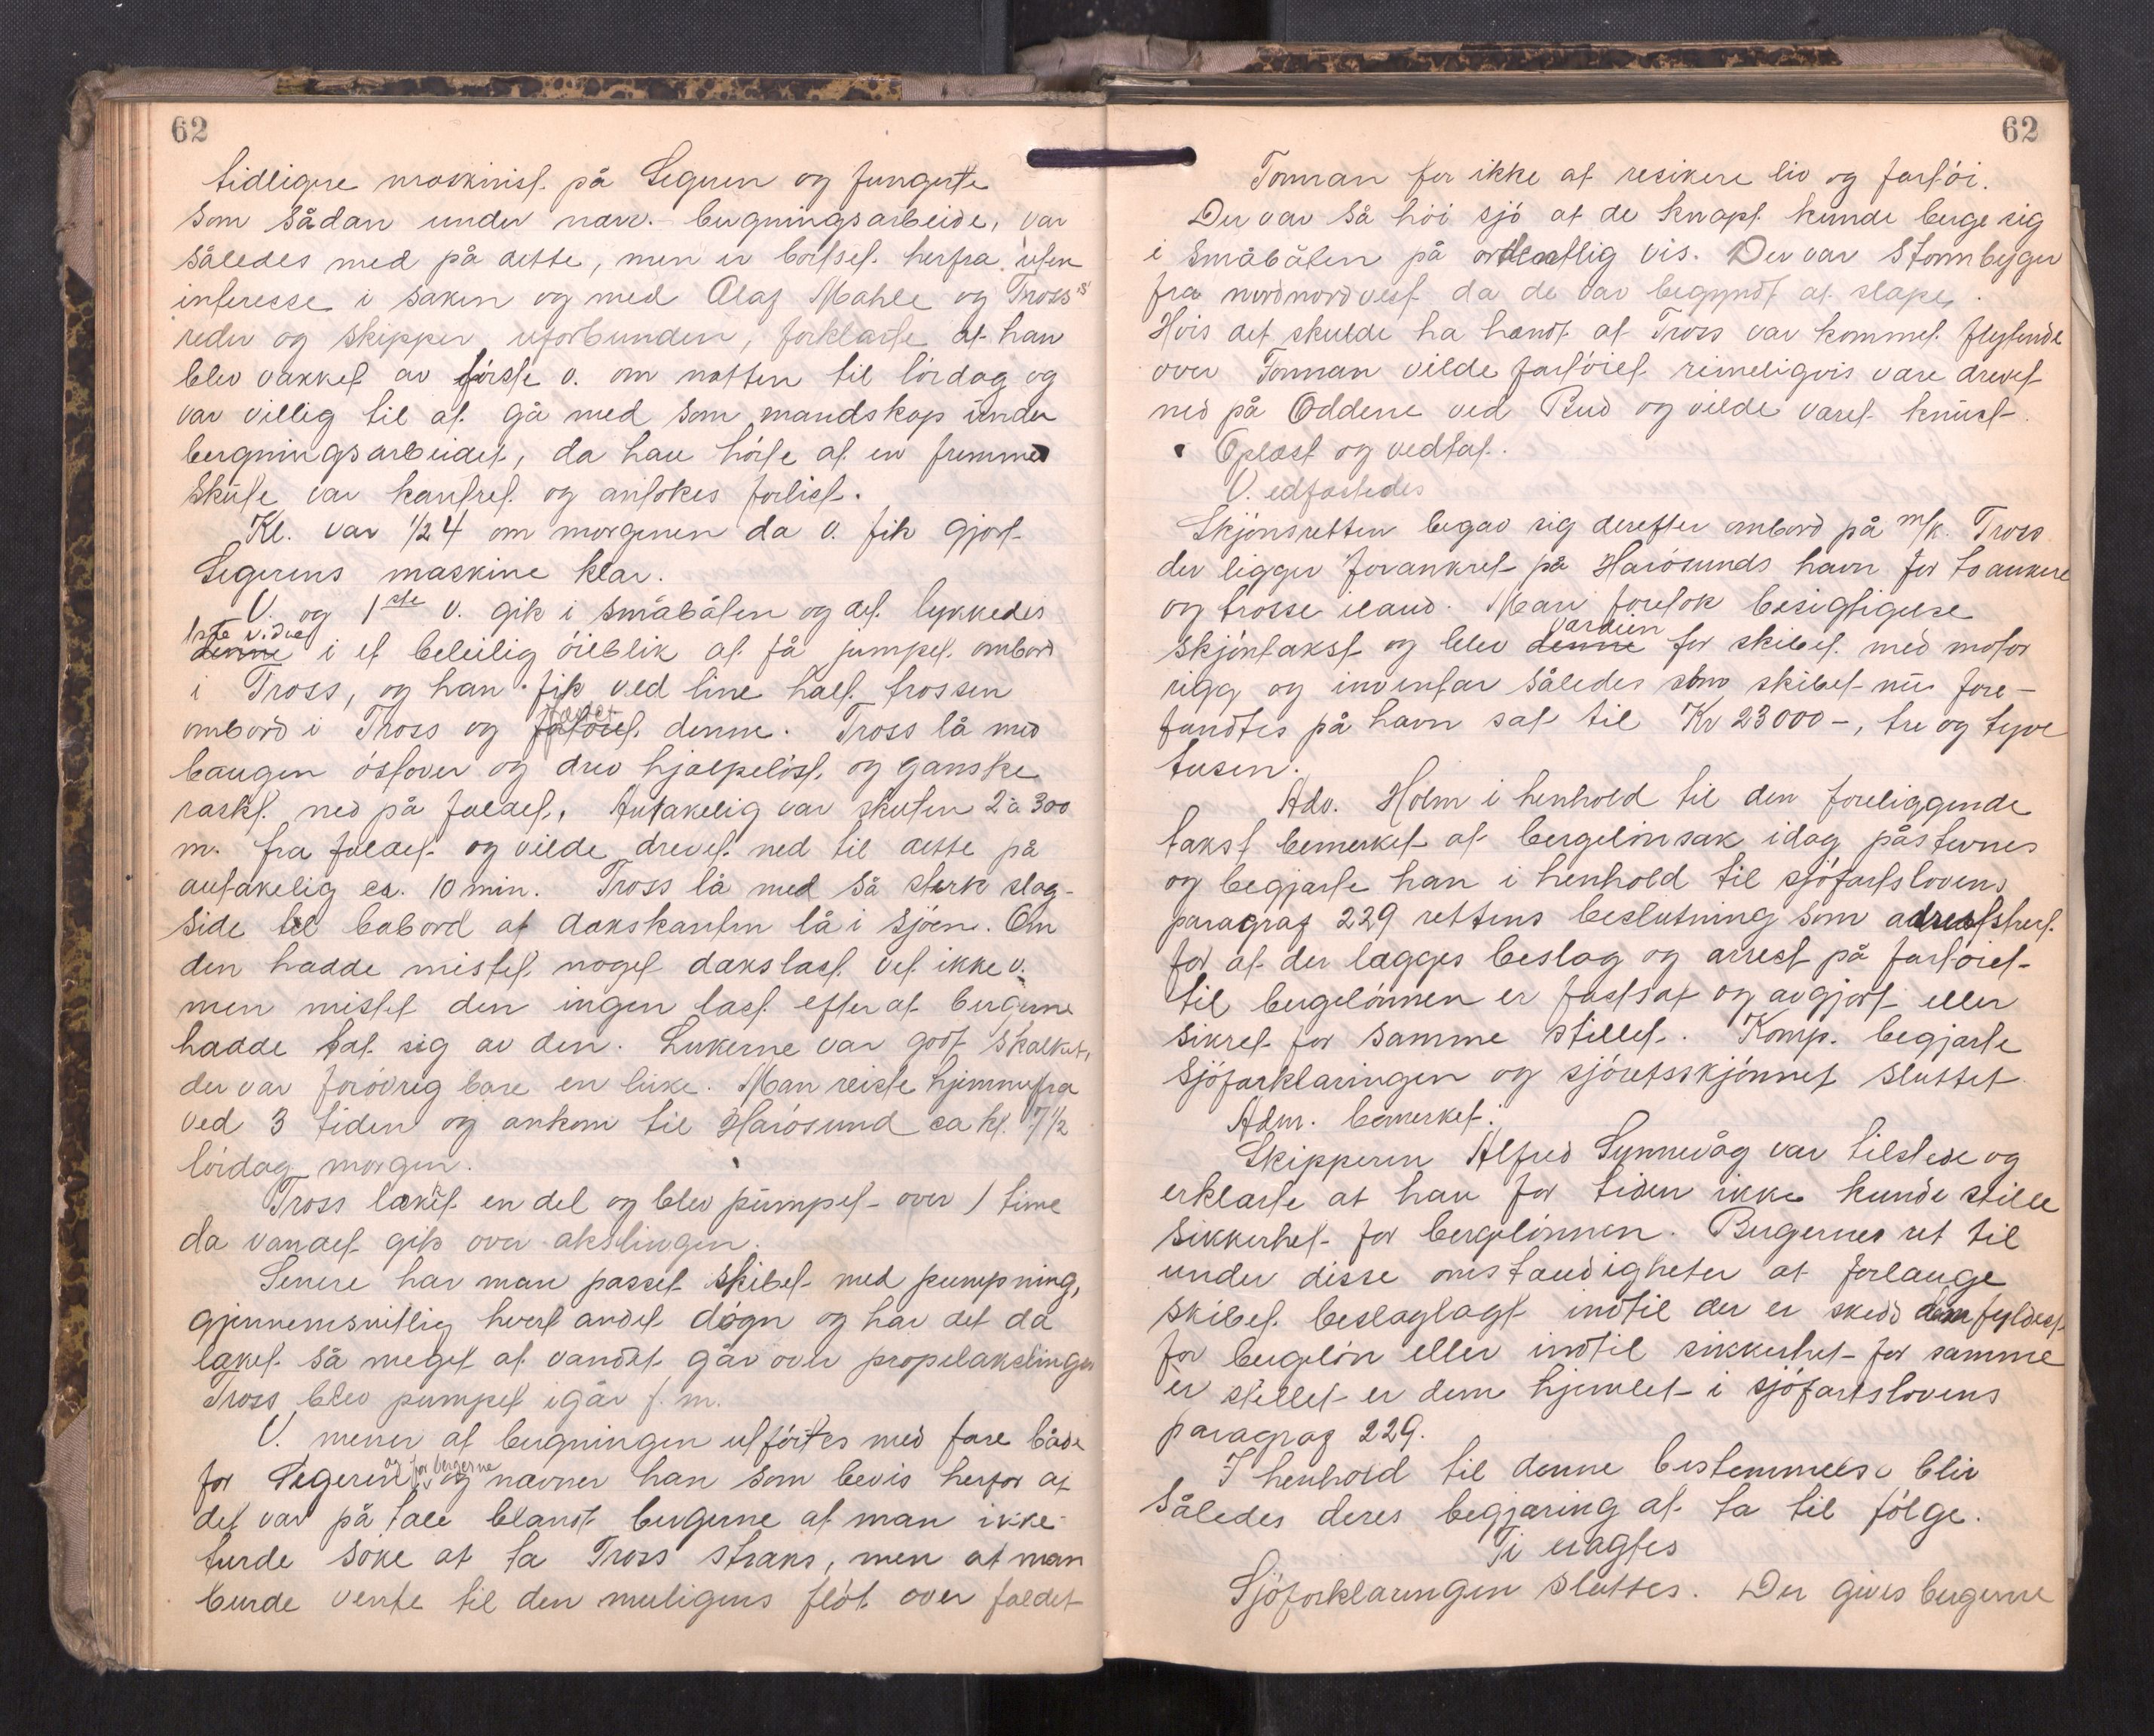 62
tidligere maskinist på Segeren og fungerte
som sådan under nævn. bergningsarbeide, var
således med på dette, men er bortset herfra uten
interesse i saken og med Olaf Mahle og Tross's
reder og skipper uforbunden, forklarte at han
blev vækket av første v. om natten til lördag og
var villig til at gå med som mandskap under
bergningsarbeidet, da han hörte at en fremmed
skute var kantret og antokes forlist.
Kl. var 1/2 4 om morgenen da v. fik gjort
Segerens maskine klar.
V. og 1ste v. gik i småbåten og det lykkedes
1ste vidne
denne i et beleilig öieblik at få jumpet ombord
i Tross, og han fik ved line halt trossen
ombord i Tross og fæstet denne. Tross lå med
baugen östover og drev hjælpelöst og ganske
raskt ned på faldet. Antakelig var skuten 2 à 300
m. fra faldet og vilde drevet ned til dette på
antakelig ca. 10 min. Tross lå med så sterk slag-
side til babord at dækskanten lå i sjöen. Om
den hadde mistet noget dækslast vet ikke v.
men mistet den ingen last efter at bergerne
hadde tat sig av den. Lukerne var godt skalket,
der var forövrig bare en luke. Man reiste hjemmefra
ved 3 tiden og ankom til Harösund ca kl. 7 1/2
lördag morgen.
Tross læket en del og blev pumpet over 1 time
da vandet gik over akslingen.
Senere har man passet skibet med pumpning,
gjennemsnitlig hvert andet dögn og har det da
læket så meget at vandet går over propelakslingen
Tross blev pumpet igår f.m.
V. mener at bergningen utförtes med fare både
og for bergerne
for Segeren og nævner han som bevis herfor at
det var på tale blandt bergerne at man ikke
turde söke at ta Tross straks, men at man
burde vente til den muligens flöt over faldet
62
Tonnan for ikke at resikere liv og fartöi.
Der var så höi sjö at de knapt kunde berge sig
i småbåten på ordentlig vis. Der var stormbyger
fra nordnordvest da de var begyndt at slæpe.
Hvis det skulde ha hændt at Tross var kommet flytende
over Tonnan vilde fartöiet rimeligvis være drevet
ned på Oddene ved Bud og vilde været knust.
Oplæst og vedtat.
V. edfæstedes
Skjönsretten begav sig derefter ombord på m/k. Tross
der ligger forankret på Harösunds havn for to ankere
og trosse iland. Man foretok besigtigelse
værdien
skjöntakst og blev denne for skibet med motor
rigg og inventar således som skibet nu fore-
fandtes på havn sat til Kr 23000 -, tre og tyve
tusen.
Adv. Holm i henhold til den foreliggende
takst bemerket at bergelönsak idag påstevnes
og begjærte han i henhold til sjöfartslovens
paragraf 229 rettens beslutning som
for at der lægges beslag og arrest på fartöiet
til bergelönnen er fastsat og avgjort eller
sikret for samme stillet. Komp. begjærte
sjöforklaringen og sjöretsskjönnet sluttet
Adm. bemerket:
Skipperen Alfred Synnevåg var tilstede og
erklærte at han for tiden ikke kunde stille
sikkerhet for bergelönnen. Bergernes ret til
under disse omstændigheter at forlange
skibet beslaglagt indtil der er skedd dem fyldest
for bergelön eller indtil sikkerhet for samme
er stillet er dem hjemlet i sjöfartslovens
paragraf 229.
I henhold til denne bestemmelse bliv
således deres begjæring at ta til fölge.
Ti eragtes
Sjöforklaringen sluttes. Der gives bergerne